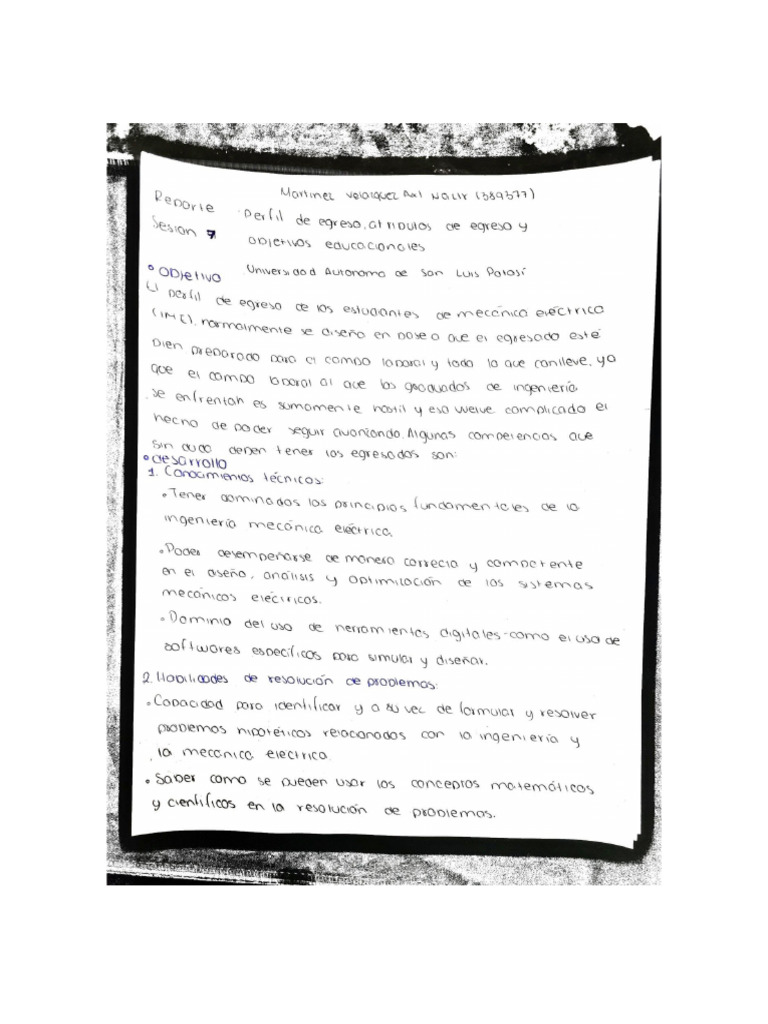 Martinez Velazquez Axl Nazir (389377)
Reporte
Sesion 7
Perfil de egreso, atributos de egreso y
objetivos educacionales
Universidad Autonoma de San Luis Potosí
• Objetivo
El perfil de egreso de los estudiantes de mecánica eléctrica
(IME), normalmente se diseña en base a que el egresado esté
bien preparado para el campo laboral y todo lo que conlleve, ya
que el campo laboral al que los graduados de ingeniería
se enfrentan es sumamente hostil y eso vuelve complicado el
hecho de poder seguir avanzando. Algunas competencias que
sin duda deben tener los egresados son:
• desarrollo
1. Conocimientos técnicos:
• Tener dominados los principios fundamentales de la
ingeniería mecánica eléctrica.
• Poder desempeñarse de manera correcta y competente
en el diseño, análisis y optimización de los sistemas
mecánicos eléctricos.
• Dominio del uso de herramientas digitales como el uso de
softwares específicos para simular y diseñar.
2. Habilidades de resolución de problemas:
• Capacidad para identificar y a su vez de formular y resolver
problemas hipotéticos relacionados con la ingeniería y
la mecánica electrica.
• Saber como se pueden usar los conceptos matemáticos
y científicos en la resolución de problemas.